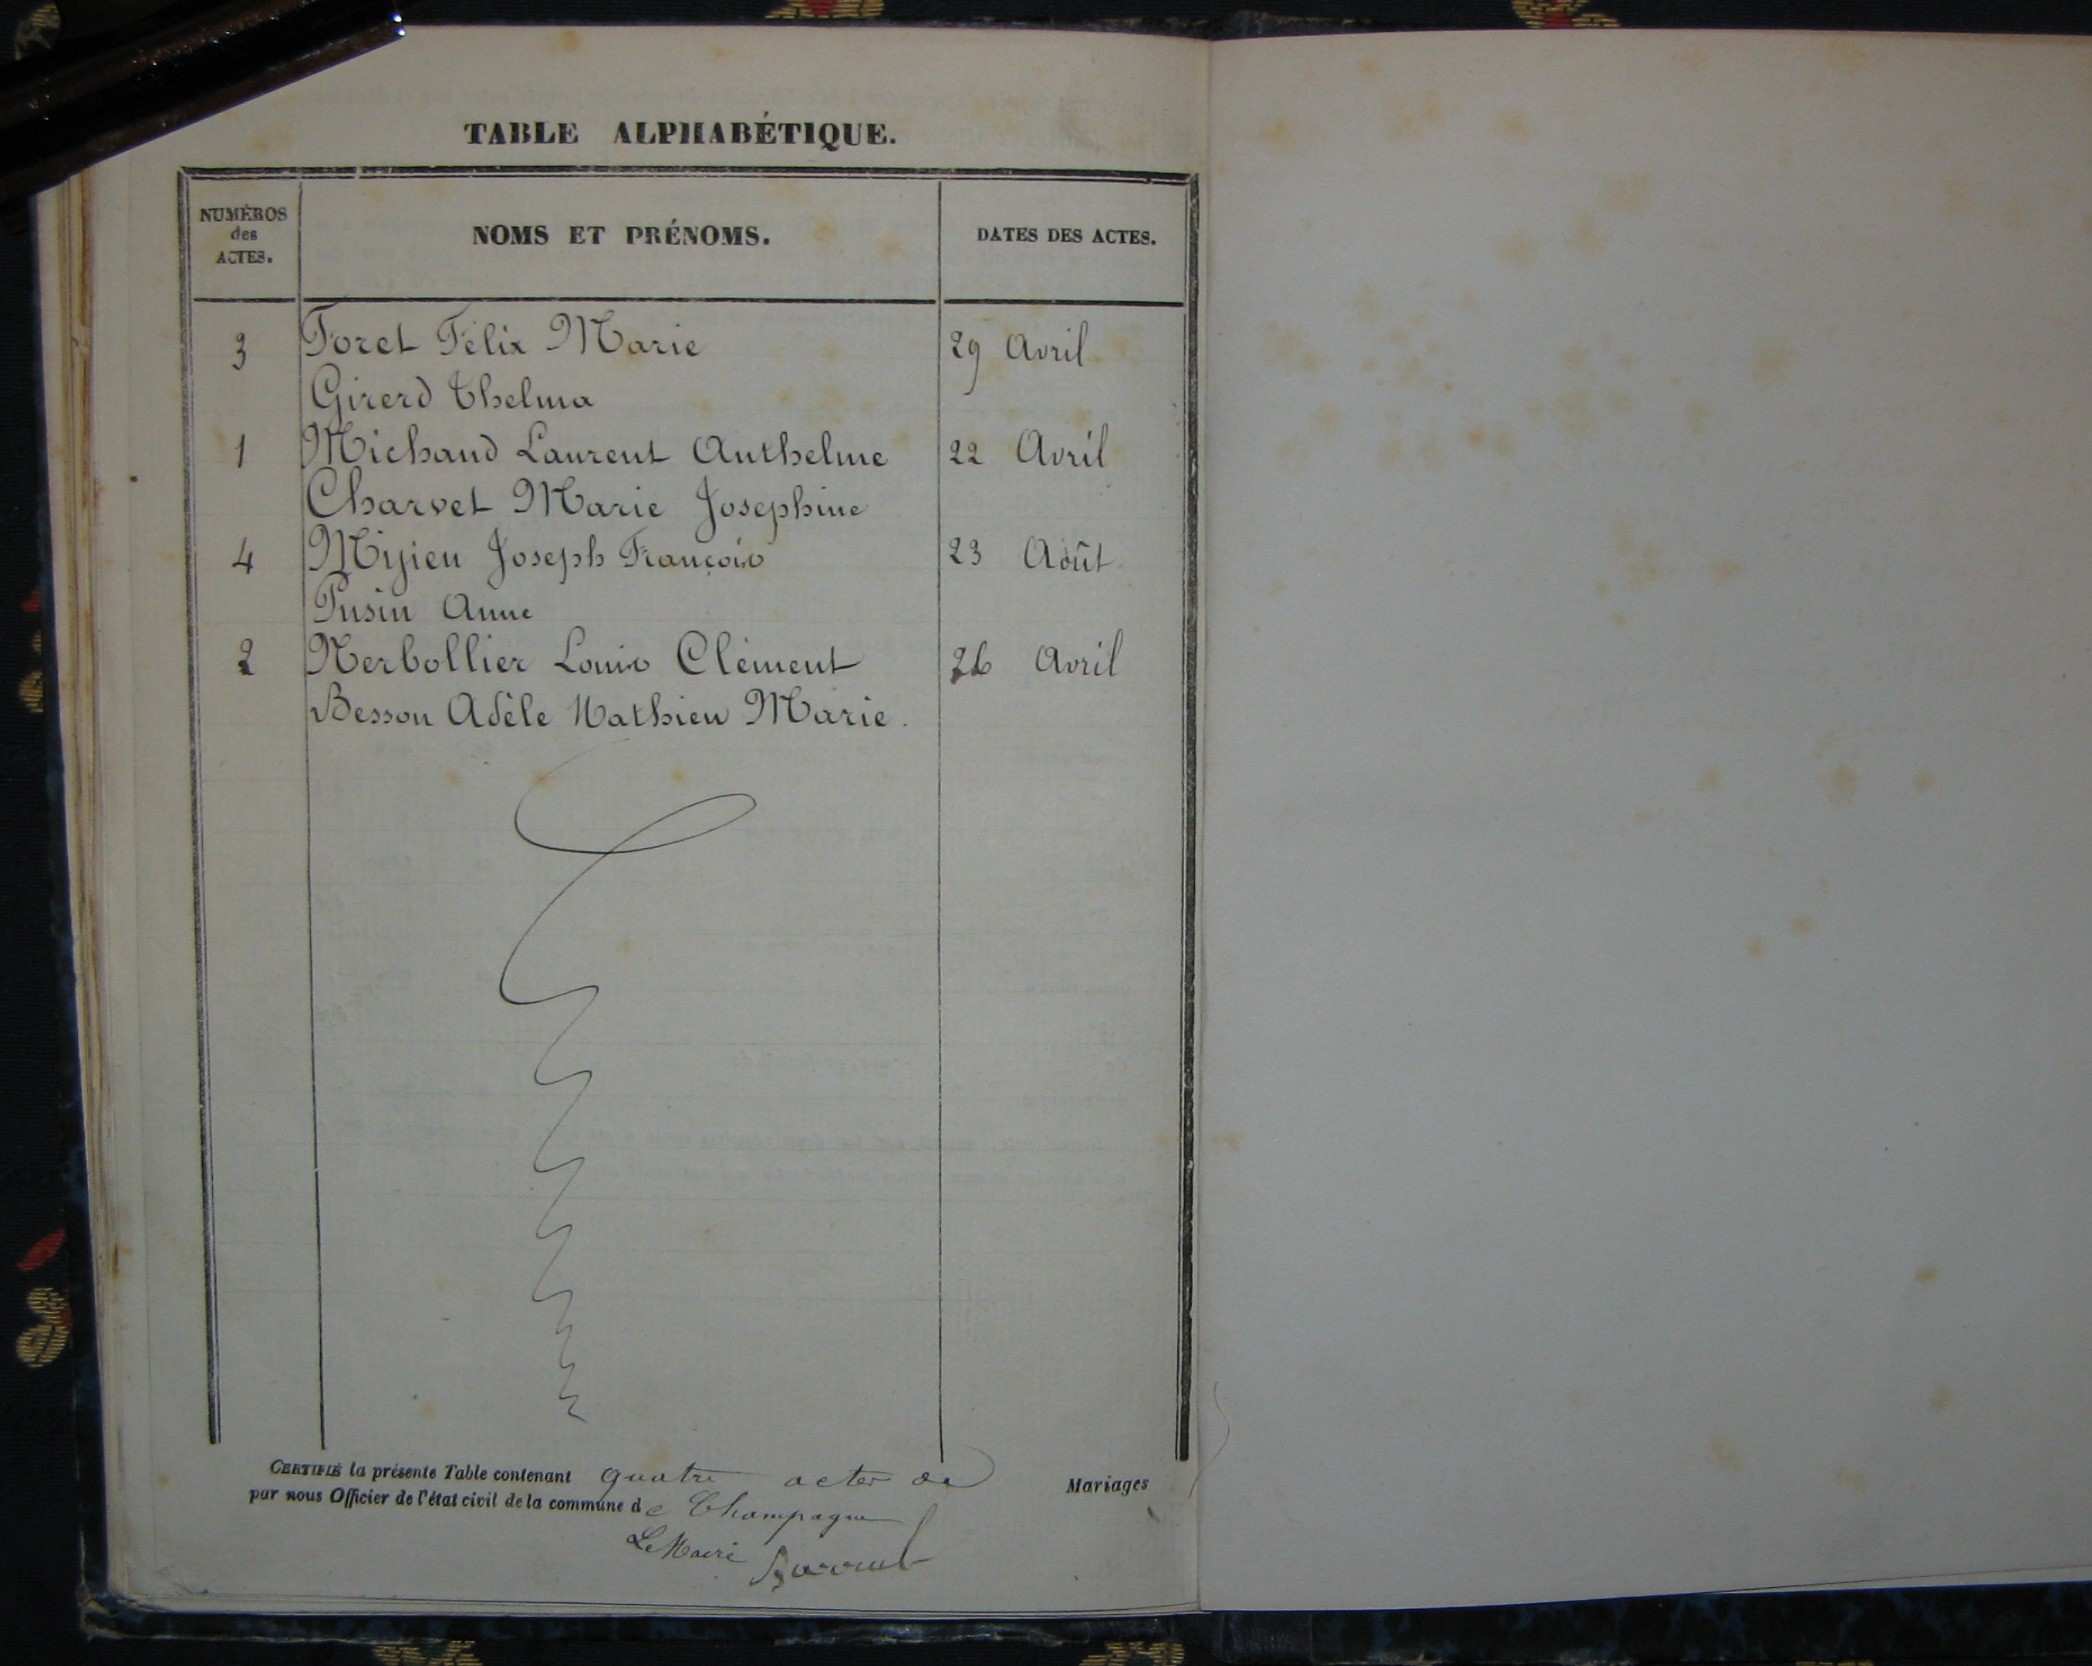 TABLE ALPHABÉTIQUE.
NUMÉROS des ACTES. NOMS ET PRÉNOMS. DATES DES ACTES.
3 Foret Félix Marie 29 Avril
Girerd Thelma
1 Michaud Laurent Anthelme 22 Avril
Charvet Marie Josephine
4 Joseph François 23 Août
Pusin Anne
2 Nerbollier Louis Clément 26 Avril
Besson Adèle Mathieu Marie.
CERTIFIÉ la présente Table contenant quatre actes de Mariages
par nous Officier de l'état civil de la commune de Champagne
Le Maire